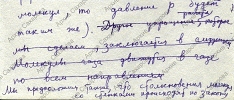 молекул то давление р будет
таким же). Другое упрощение которое
мы сделаем, заключается в следующем
Молекулы газа движутся в газе
по всем направлениям.
Мы предположим также, что столкновения молекул
со стенками происходят по закону